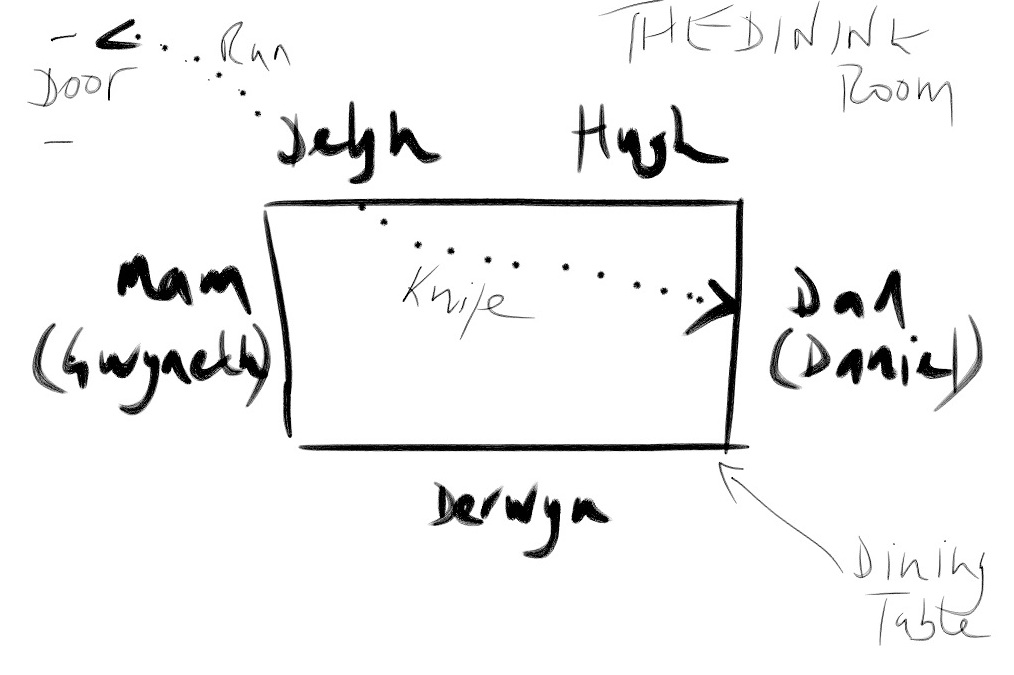 Run
THE DININK
Door
Room
Delyh
Hugh
Mam
(Gwyneth)
Knife
Dad
(Daniel)
Derwyn
Dining
Table